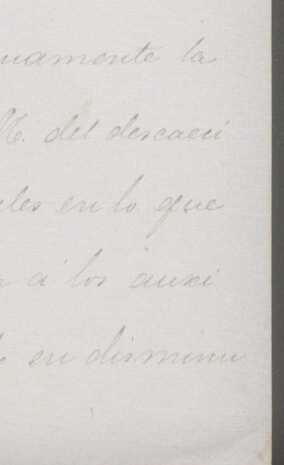 uamente la
M. del descaeci
les en lo que
á los auxi
en disminu